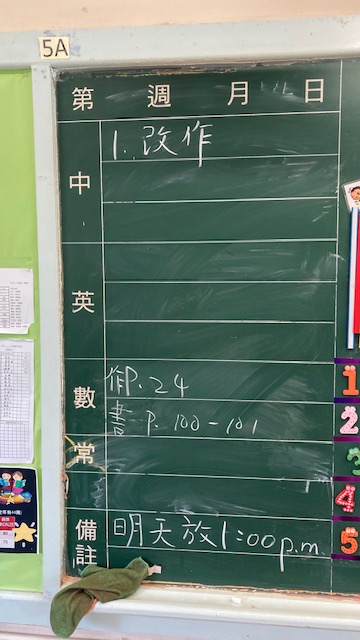 5A
第 週 月 日
中
1. 改作
英
數
作P. 24
書 P. 100-101
常
備註
明天放1:00 p.m.
1
2
3
4
5